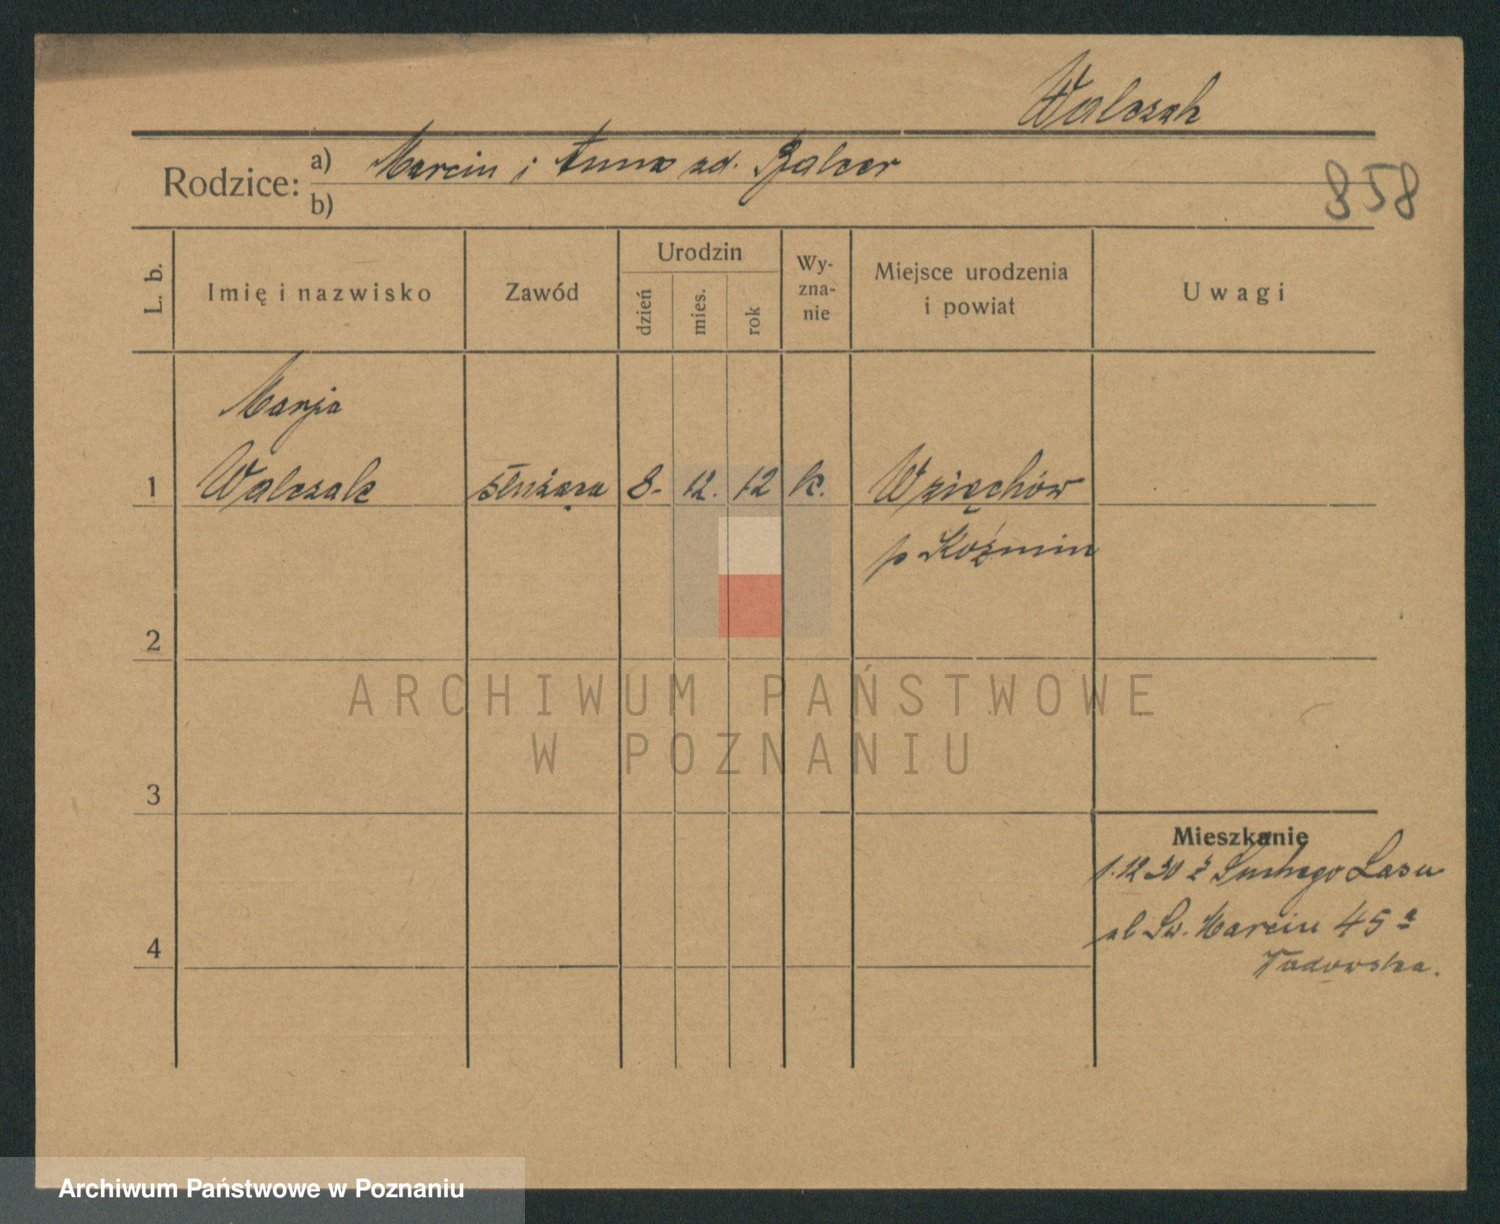 Walczak
Rodzice: a) Marcin i Anna zd. Balcer
b)
858
L. b. Imię i nazwisko Zawód Urodzin dzień mies. rok Wy-zna-nie Miejsce urodzenia i powiat Uwagi
Marja
1 Walczak służąca 8. 12. 12 k. Wziąchów
p Koźmin
2
ARCHIWUM PAŃSTWOWE
W POZNANIU
3
Mieszkanie
1.12 30 z Suchego Lasu
4 ul Św. Marcin 45a
Archiwum Państwowe w Poznaniu